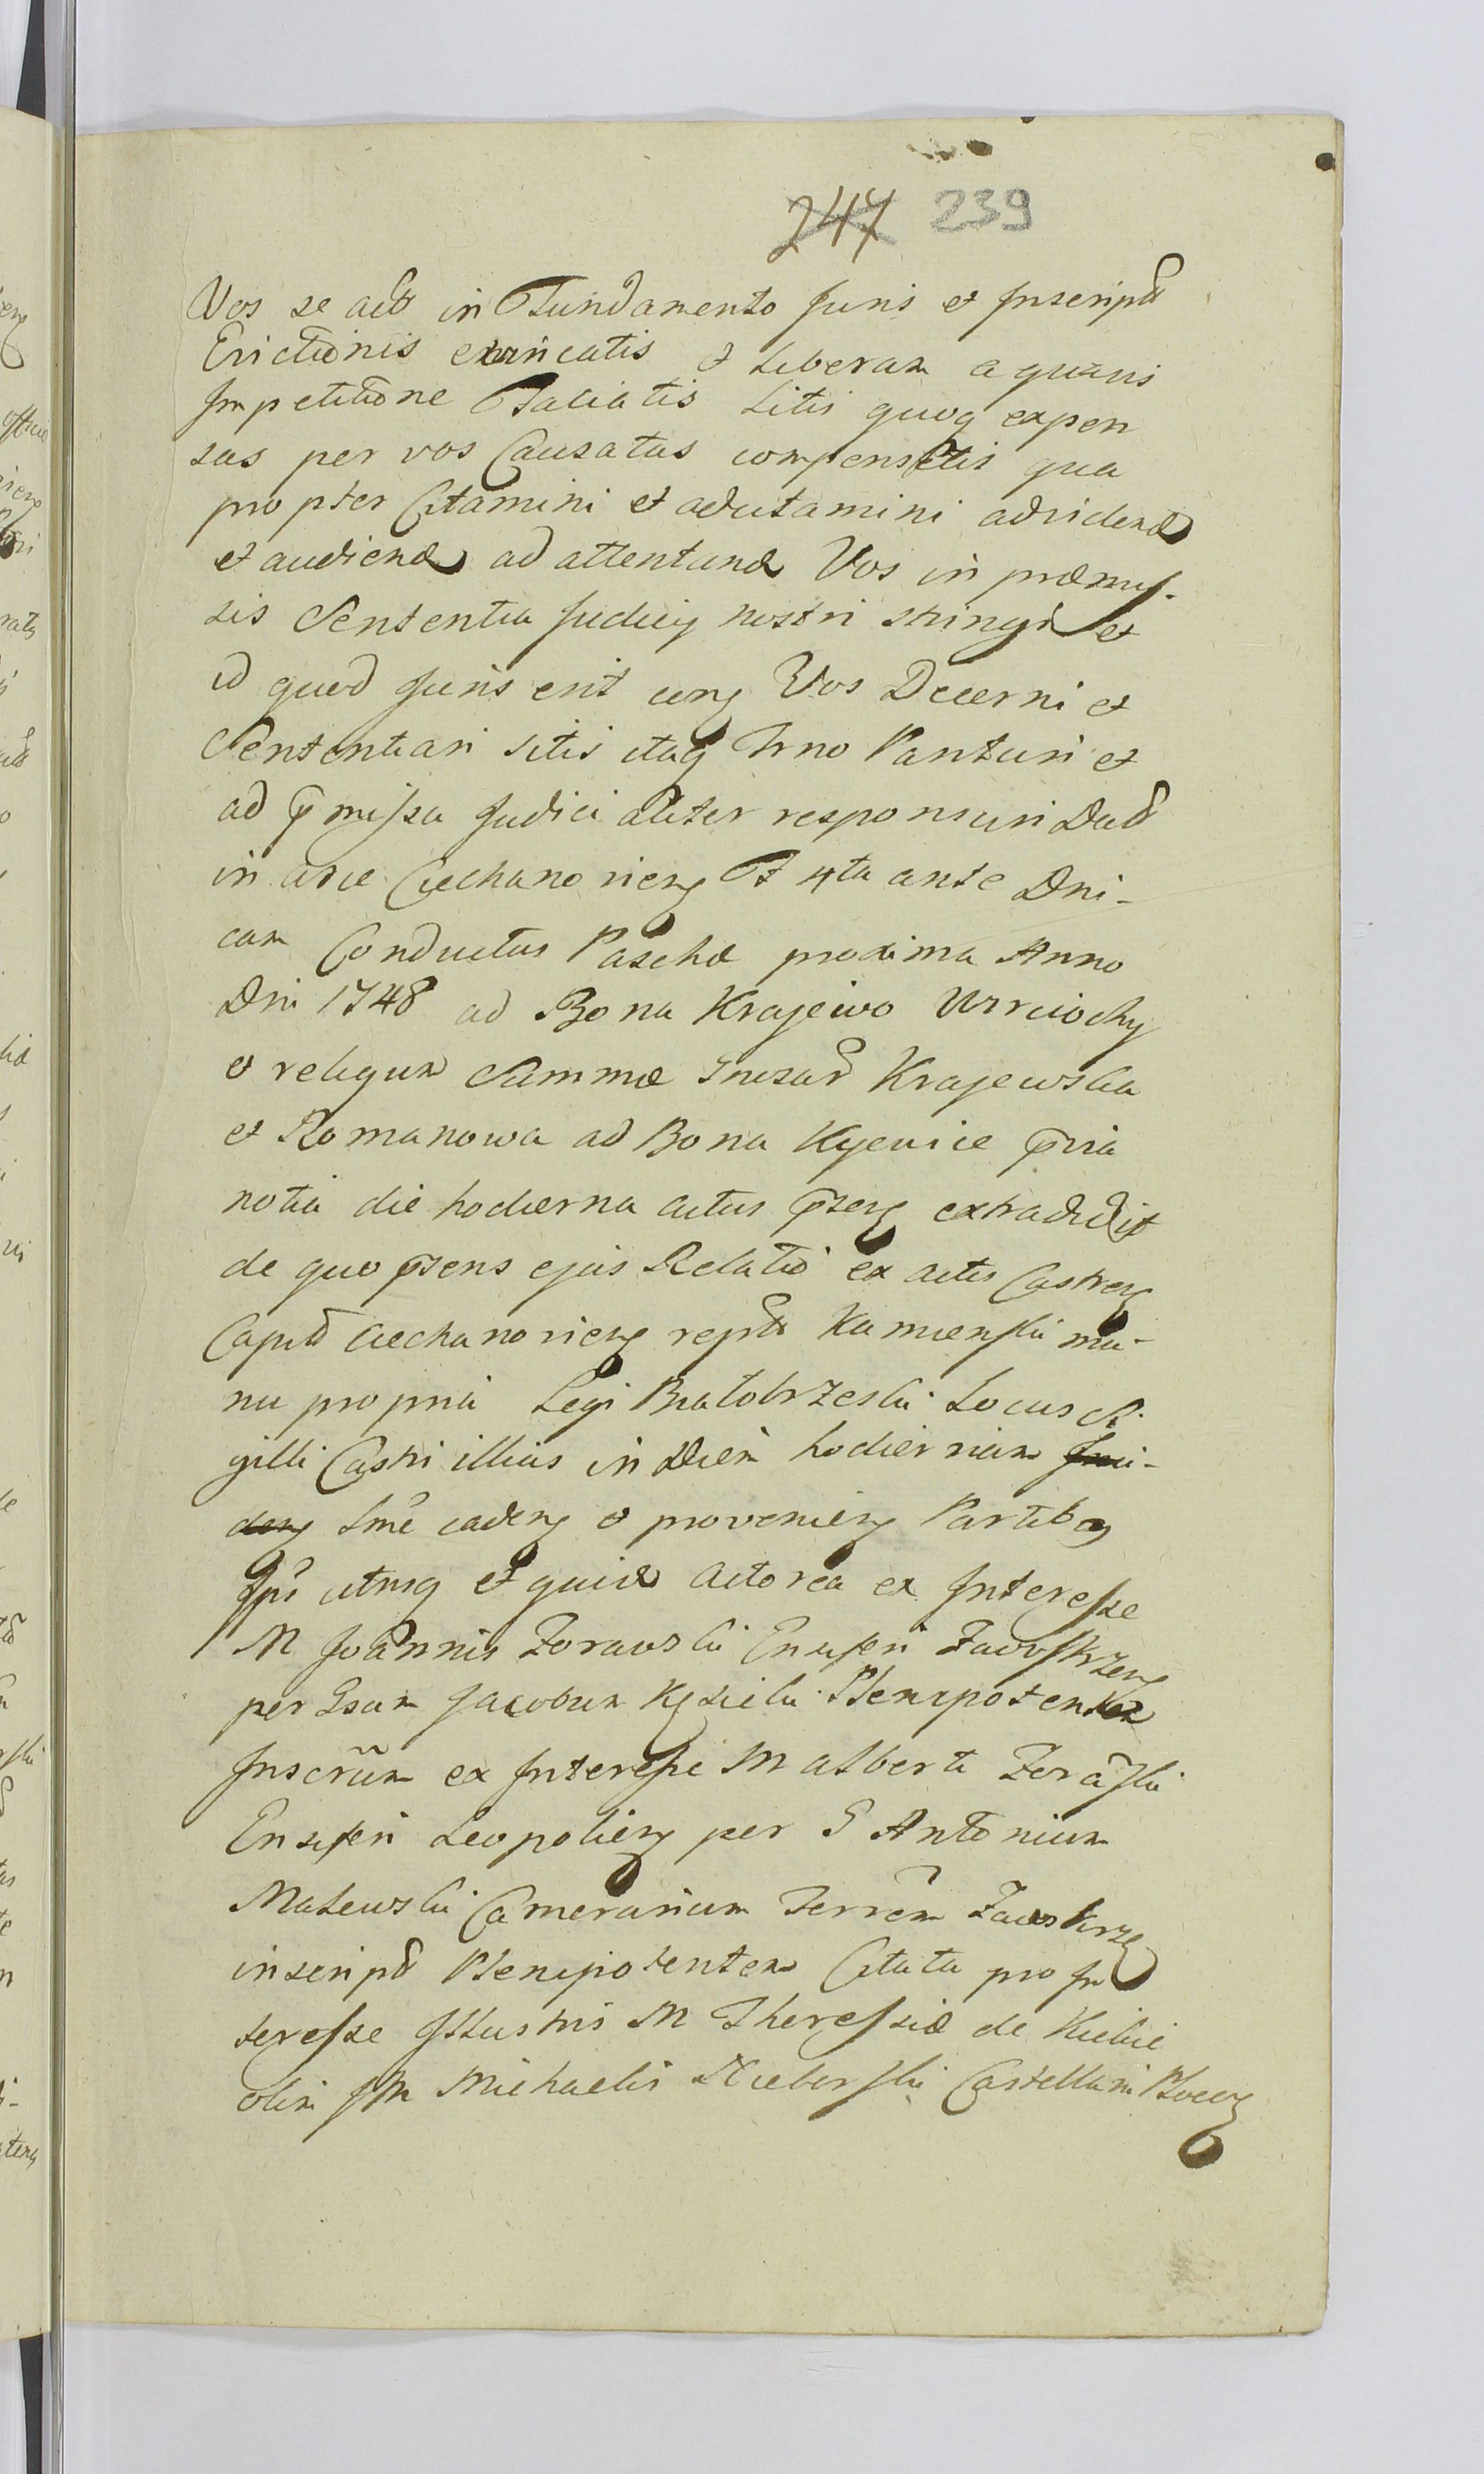 247 239
Vos se actõ in Fundamento Juris et Inscriptõ
Evictionis evincatis et Liberam a quavis
Impetitione Faciatis Litis quoq expen
sas per vos Causatas compensetis qua
propter Citamini et adcitamini ad videnđ
et audienđ ad attentanđ Vos in præmis-
sis Sententia Judicy nostri stringi et
id quod Juris erit erg Vos Decerni et
Sententiari sitis itaq Trno Parituri et
ad p̃missa Judicialiter responsuri Datt
in arce Ciechanovieng F 4ta ante Dni-
cam Conductus Paschæ proxima Anno
Dni 1748 ad Bona Krajewo Wrciochy
et reliquam Summæ Krajewska
et Romanowa ad Bona Kijewice p̃via
notia die hodierna actus p̃seng extradidit
de quo p̃sens ejus Relatio ex actis Castreng
Capitt Ciechanovieng reptõ Kamienski ma-
nu propria Legi Białobrzeski Locus Si
gilli Castri illius in Diem hodiernam Inci-
deng Tmẽ cadeng et provenieng Partibq
Ipĩs utrisq et quidẽ Actorea ex Interesse
M Joannis Zorawski Ensiferi Zawskrzeng
per Gsum Jacobum Kęsicki Plenipotentem
Inscrãm ex Interesse M Alberti Zorãski
Ensiferi Leopolieng per G Antonium
Maiewski Camerarium Terrẽm Zawskrzeg
inscriptt Plenipotentem Citata pro In
teresse Illustris M Theressiæ de Kickie
olim IM Michaelis Nieborski Castellani Płoceng